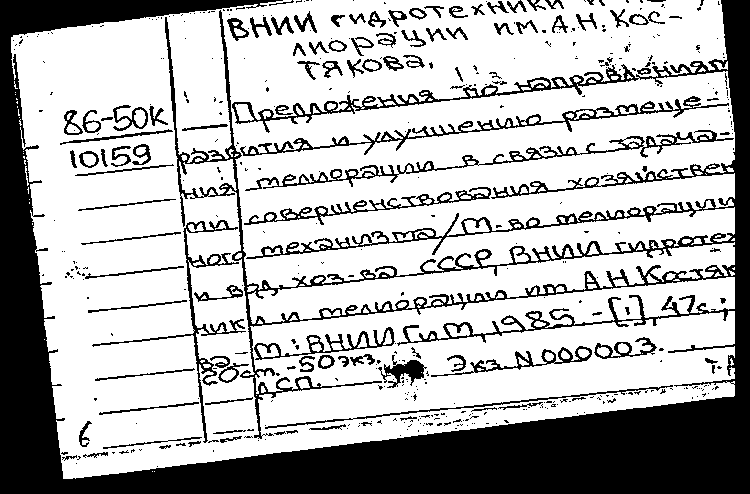 ВНИИ гидротехники и
лиорации им. А.Н. Кос-
тякова.
86-50К
10159
Предложения по направлениям
развития и улучшению размеще-
ния мелиорации в связи с задача-
ми совершенствования хозяйствен
ного механизма/М-во мелиорации
и вод. хоз-ва СССР, ВНИИ гидротех
ники и мелиорации им А.Н Костяк
ва.- М.: ВНИИГиМ, 1985 - [1], 47с.;
20см. - 50 экз.
ДСП. Экз. N 000003.
6